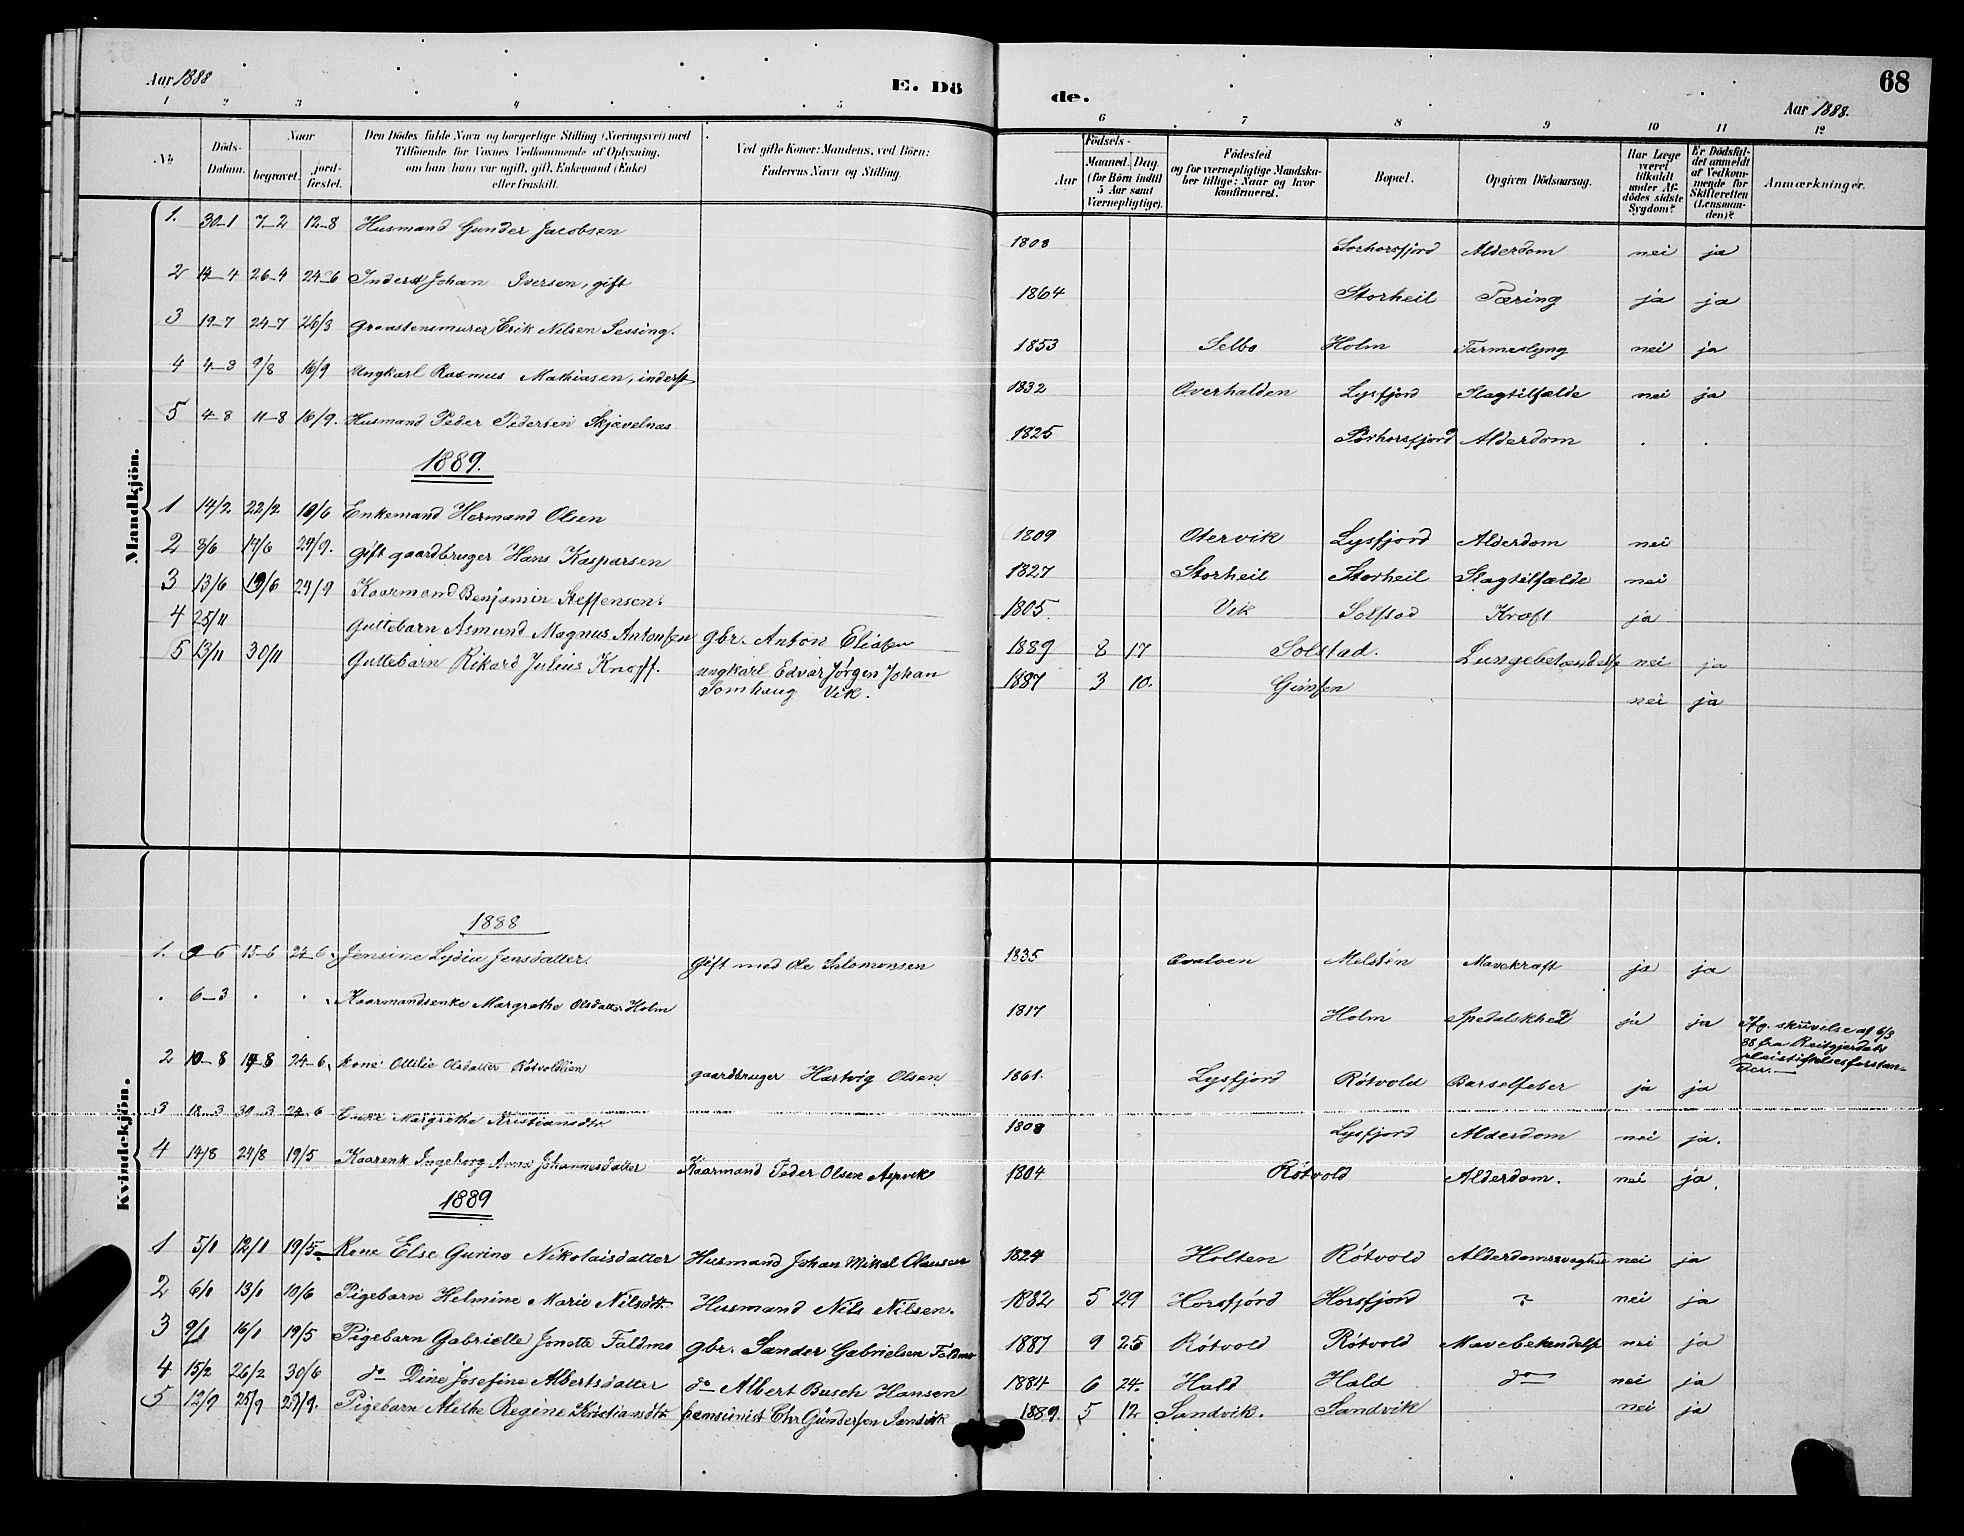 Aar 1888
E. Dö
de.
68
Aar 1888.
1 2 3 4 5 6 7 8 9 10 11 12
No
Döds-Datum.
Naar
begravet.
jord-fæstet.
Den Dödes fulde Navn og borgerlige Stilling (Næringsvei) med
Tilföiende for Voxnes Vedkommende af Oplysning,
om han (hun) var ugift, gift, Enkemand (Enke)
eller fraskilt.
Ved gifte Koner: Mandens, ved Börn:
Faderens Navn og Stilling.
Födsels-
Aar
Maaned. Dag.
(for Börn indtil
5 Aar samt
Værnepligtige).
Födested
og for værnepligtige Mandska-
ber tillige: Naar og hvor
konfirmeret.
Bopæl.
Opgiven Dödsaarsag.
Har Læge
været
tilkaldt
under Af-
dödes sidste
Sygdom?
Er Dödsfal-
det anmeldt
af Vedkom-
mende for
Skifteretten
(Lensman-
den)?
Anmærkninger.
Mandkjön.
1. 30-1 7-2 12-8 Husmand Gunder Jacobsen 1808 Sorhorsfjord Alderdom nei ja
2 14-4 26-4 24-6 Inderst Johan Iversen, gift 1864 Storheil Tæring ja ja
3 19-7 24-7 26/8 Graastensmurer Erik Nilsen Sessing. 1853 Selbo Holm Tarmeslyng nei ja
4 4-8 9/8 16/9 Ungkarl Rasmus Mathiasen, inderst 1832 Overhalden Lysfjord Slagtilfælde nei ja
5 4-8 11-8 16/9. Husmand Peder Pedersen Skjævelnæs 1825 Sörhorsfjord Alderdom . .
1889.
1 14/2 22/2 10/6 Enkemand Hermand Olsen 1809 Otervik Lysfjord Alderdom nei
2 3/6 14/6 24/9. gift gaardbruger Hans Kasparsen 1827 Storheil Storheil Slagtilfælde nei
3 13/6 19/6 24/9 Kaarmand Benjamin Steffensen. 1805 Vik Solstad Kræft ja
4 25/11 Guttebarn Asmund Magnus Antonsen gbr. Anton Eliasen 1889 8 17 Solstad. Lungebetændelse nei ja
5 23/11 30/11 Guttebarn Rikard Julius Knoff. ungkarl Edvar Jørgen Johan
Somhaug Vik. 1887 3 10. Gimsen nei ja
Kvindekjön.
1888
1. 9-6 15-6 24-6 Jensine Lydia Jensdatter. Gift med Ole Salomonsen 1835 Melstén Mavekræft ja ja
. 6-3 . . Kaarmandsenke Margrethe Olsdatter Holm 1817 Holm Spedalskhed ja ja Ifg. skrivelse af 6/3
88 fra Reitgjerdets
pleiestiftelsesforstan-
der.
2 10-8 14-8 24-6 Kone Ottilie Olsdatter Rötvoldlien gaardbruger Hartvig Olsen 1861. Lysfjord Rötvold Barselfeber ja ja
3 18-3 30-3 24-6 Enke Margrethe Kristiansdtr 1808 Lysfjord Alderdom nei ja.
4 14/8 24/8 19/5 Kaarenk Ingeborg Anna Johannesdatter Kaarmand Peder Olsen Aspvik 1804 Rötvold Alderdom. nei ja.
1889
1 5/1 12/1 19/5 Kone Else Gurine Nikolaisdatter Husmand Johan Mikal Olausen 1824 Holten Rötvold Alderdomssvaghed nei ja
2 6/1 13/1 10/6 Pigebarn Helmine Marie Nilsdtr Husmand Nils Nilsen. 1882 5 29 Horsfjord Horsfjord ? nei ja
3 9/1 16/1 19/5 Pigebarn Gabrielle Jonette Faldmo gbr. Sander Gabrielsen Faldmo 1887 9 25 Rötvold Rötvold Mavebetændelse nei ja
4 15/2 26/2 30/6 do Dine Josefine Albertsdatter do Albert Busch Hansen 1884 6 24. Hald Hald do nei ja
5 12/9 25/9 29/9. Pigebarn Alethe Regine Kristiansdtr pensionist Chr Gündersen Sandvik 1889. 5 12 Sandvik. Sandvik nei ja